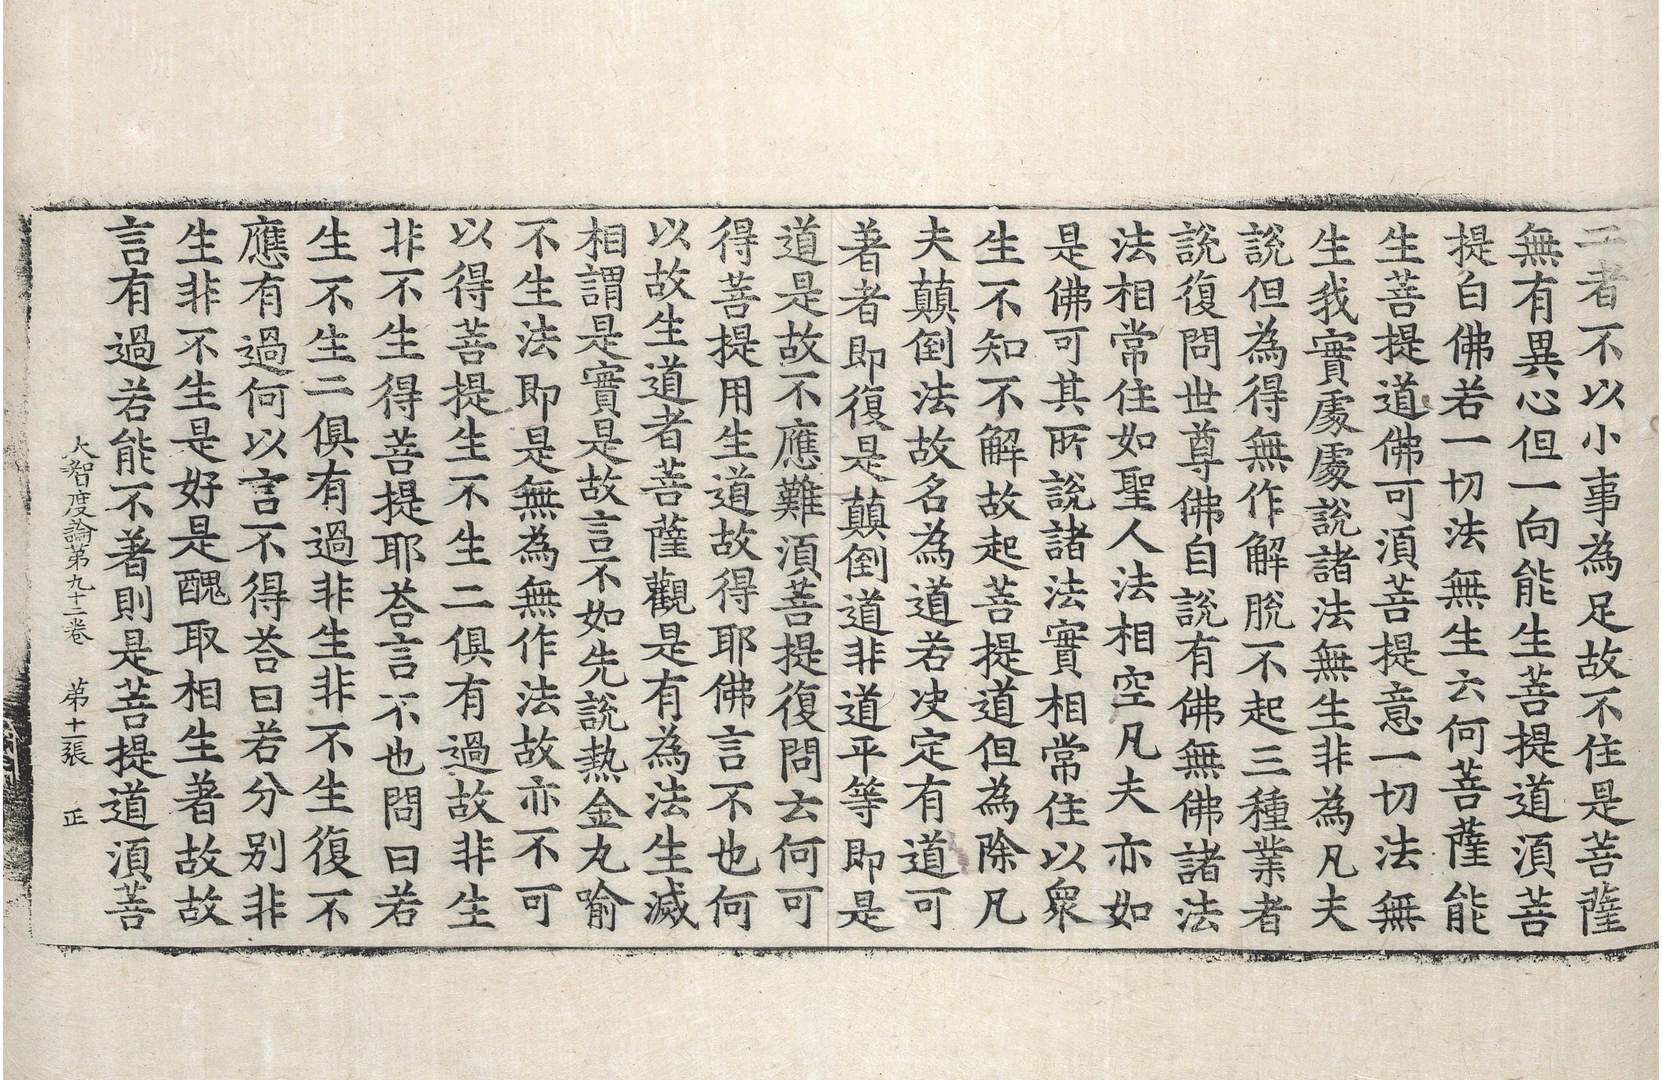 二者不以小事為足故不住是菩薩
無有異心但一向能生菩提道湏菩
提白佛若一切法無生云何菩薩能
生菩提道佛可湏菩提意一切法無
生我實處處說諸法無生非為凡夫
說但為得無作解脫不起三種業者
說復問世尊佛自說有佛無佛諸法
法相常住如聖人法相空凡夫亦如
是佛可其所說諸法實相常住以衆
生不知不解故起菩提道但為除凡
夫顛倒法故名為道若决定有道可
著者即復是顛倒道非道平等即是
道是故不應難湏菩提復問云何可
得菩提用生道故得耶佛言不也何
以故生道者菩薩觀是有為法生滅
相謂是實是故言不如先說熱金丸喻
不生法即是無為無作法故亦不可
以得菩提生不生二俱有過故非生
非不生得菩提耶荅言不也問曰若
生不生二俱有過非生非不生復不
應有過何以言不得荅曰若分別非
生非不生是好是醜取相生著故故
言有過若能不著則是菩提道湏菩
大智度論第九十二卷 第十一張 正